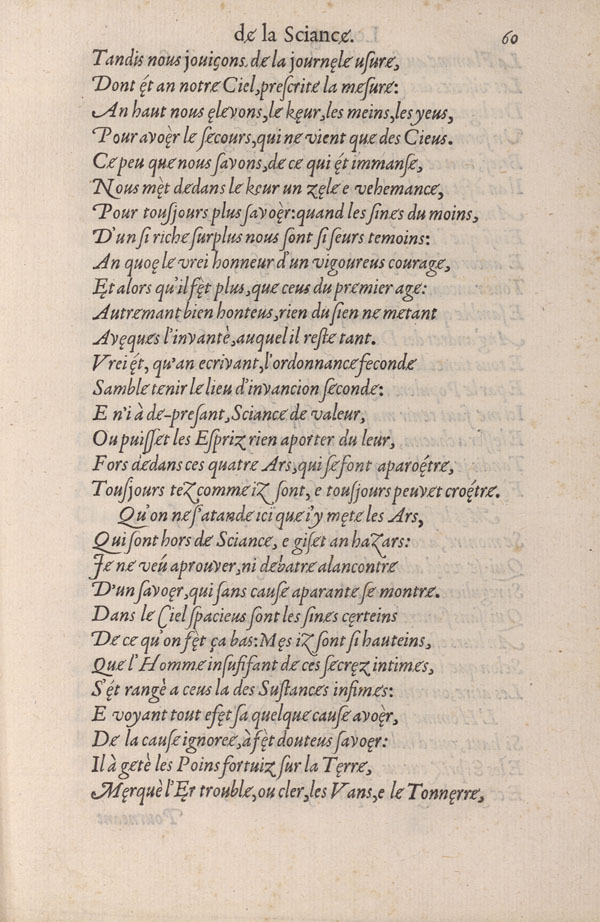 de la Sciance. 60
Tandis nous jouiçons de la journęle usure,
Dont ęt an notre Ciel, prescrite la mesure:
An haut nous ęlevons, le kęur, les meins, les yeus,
Pour avoęr le secours, qui ne vient que des Cieus.
Ce peu que nous savons, de ce qui ęt immanse,
Nous męt dedans le keur un zęle e vehemance,
Pour tousjours plus savoęr: quand les sines du moins,
D'un si riche surplus nous sont si seurs temoins:
An quoę le vrei honneur d'un vigoureus courage,
Et alors qu'il fęt plus, que ceus du premier age:
Autremant bien honteus, rien du sien ne metant
Avęques l'invantè, auquel il reste tant.
Vrei ęt, qu'an ecrivant, l'ordonnance feconde
Samble tenir le lieu d'invancion seconde:
E n'i à de-presant, Sciance de valeur,
Ou puisset les Espriz rien aporter du leur,
Fors dedans ces quatre Ars, qui se font aparoętre,
Tousjours tez comme iz sont, e tousjours peuvet croętre.
Qu'on ne s'atande ici que j'y męte les Ars,
Qui sont hors de Sciance, e giset an hazars:
Je ne veú aprouver, ni debatre alancontre
D'un savoęr, qui sans cause aparante se montre.
Dans le Ciel spacieus sont les sines cęrteins
De ce qu'on fęt ça bas: Męs iz sont si hauteins,
Que l'Homme insufisant de ces secręz intimes,
S'ęt rangè a ceus la des Sustances infimes:
E voyant tout efęt sa quelque cause avoęr,
De la cause ignoree, à fęt douteus savoęr:
Il à getè les Poins fortuiz sur la Tęrre,
Męrquè l'Er trouble, ou cler, les Vans, e le Tonnęrre,